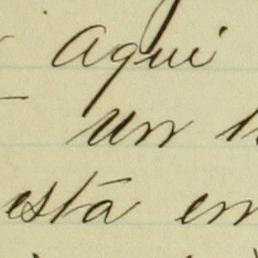 Aqui
un
está en